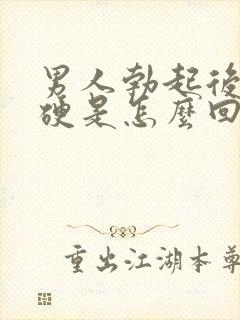 男人勃起後
硬是怎麼回
重出江湖本尊